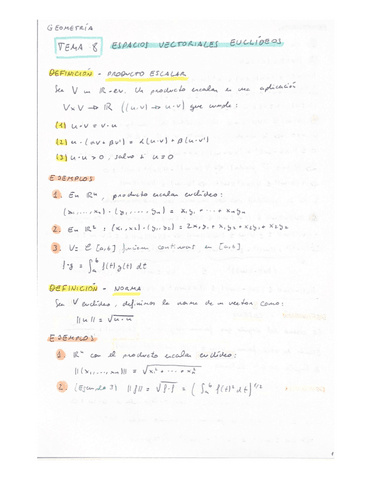 GEOMETRÍA
TEMA 8 ESPACIOS VECTORIALES EUCLÍDEOS
DEFINICIÓN - PRODUCTO ESCALAR
Sea V un R-ev. Un producto escalar es una aplicación
V×V → R ((u,v) → u·v) que cumple:
(1) u·v = v·u
(2) u·(αv+βv') = α(u·v) + β(u·v')
(3) u·u > 0, salvo u=0
EJEMPLOS
1. En Rⁿ, producto escalar euclídeo:
(x₁,...,xₙ)·(y₁,...,yₙ) = x₁y₁+···+xₙyₙ
2. En R² = (x₁,x₂)·(y₁,y₂) = 2x₁y₁+x₁y₂+x₂y₁+x₂y₂
3. V = E[a,b] funciones continuas en [a,b]
f·g = ∫ₐᵇ f(t)g(t) dt
DEFINICIÓN - NORMA
Sea V euclídeo, definimos la norma de un vector como:
||u|| = √u·u
EJEMPLOS
1. Rⁿ con el producto escalar euclídeo:
||(x₁,...,xₙ)|| = √x₁²+···+xₙ²
2. (Ejemplo 3) ||f|| = √f·f = (∫ₐᵇ f(t)² dt)^1/2